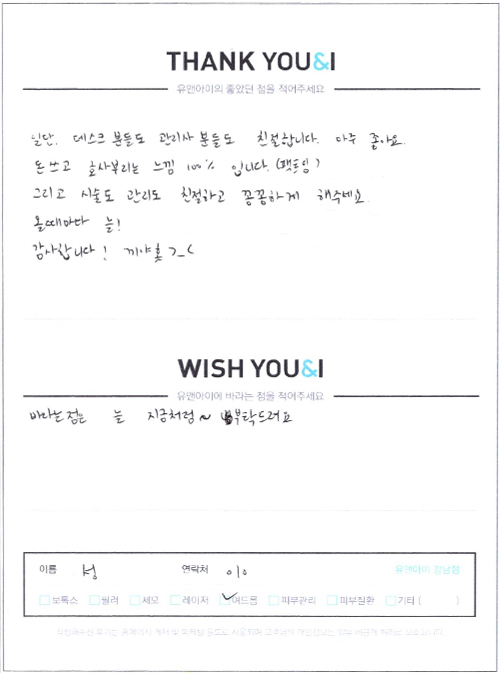 THANK YOU&I
유앤아이의 좋았던 점을 적어주세요
일단, 데스크 분들도 관리사 분들도 친절합니다. 아주 좋아요.
돈쓰고 호사부리는 느낌 100% 입니다. (팩트임)
그리고 시술도 관리도 친절하고 꼼꼼하게 해주세요.
올때마다 늘!
감사합니다! 끼야홋 >_<
WISH YOU&I
유앤아이에 바라는 점을 적어주세요
바라는점은 늘 지금처럼~ 부탁드려요
이름 성 연락처 010 유앤아이 강남점
보톡스 필러 제모 레이저 여드름 피부관리 피부질환 기타 ( )